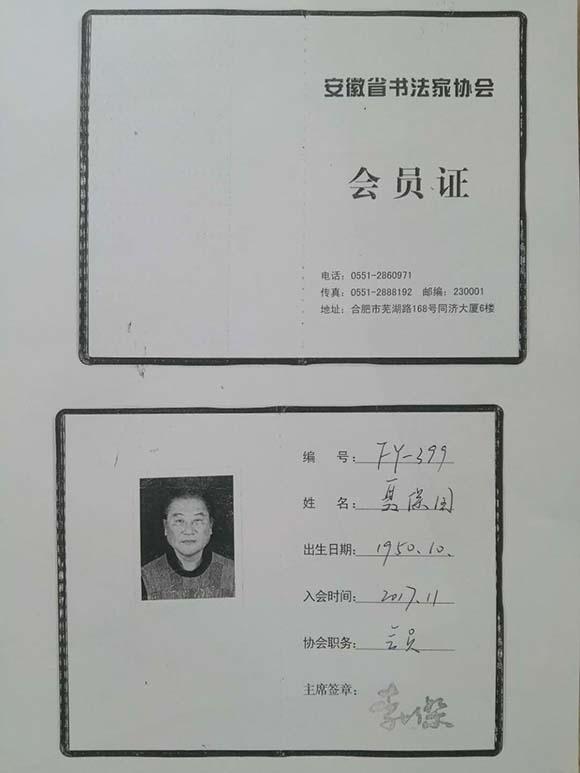 安徽省书法家协会
会员证
电话：0551-2860971
传真：0551-2888192 邮编：230001
地址：合肥市芜湖路168号同济大厦6楼
编 号：FY-399
姓 名：夏保国
出生日期：1950.10.
入会时间：2017.11
协会职务：会员
主席签章：